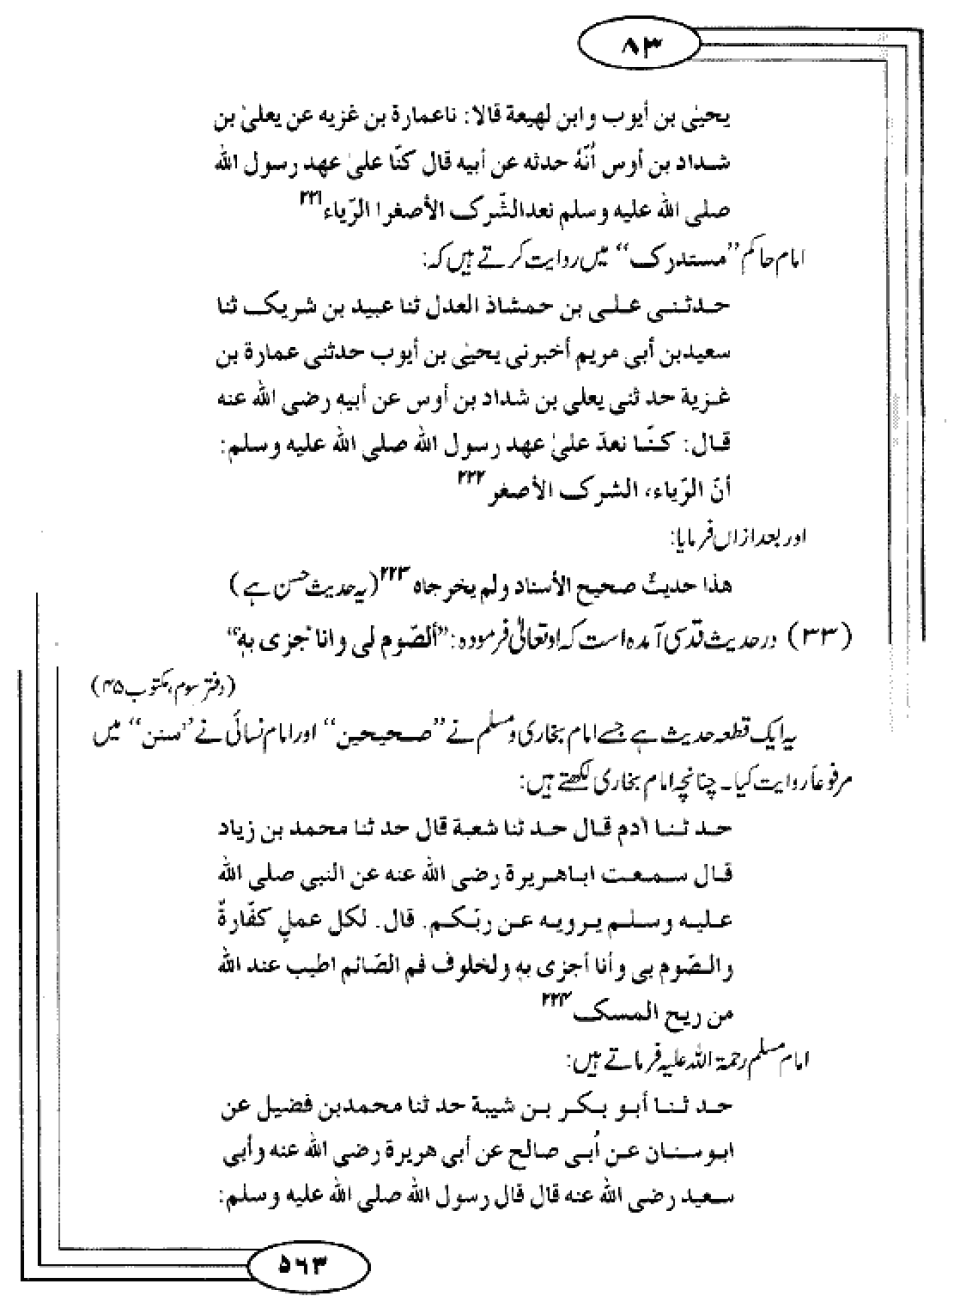 ۸۳
يحيىٰ بن أيوب وابن لهيعة قالا: ناعمارة بن غزيه عن يعلىٰ بن
شداد بن أوس أنّهٗ حدثه عن أبيه قال كنّا علىٰ عهد رسول الله
صلى الله عليه وسلم نعدالشّرک الأصغرا الرّياء۲۲۱
امام حاکم ”مستدرک“ میں روایت کرتے ہیں کہ:
حدثنى على بن حمشاذ العدل ثنا عبيد بن شريک ثنا
سعيدبن أبى مريم أخبرنى يحيىٰ بن أيوب حدثنى عمارة بن
غزية حد ثنى يعلى بن شداد بن أوس عن أبيه رضى الله عنه
قال: كنّا نعدّ علىٰ عهد رسول الله صلى الله عليه وسلم:
أنّ الرّياء، الشرک الأصغر۲۲۲
اور بعد ازاں فرمایا:
هذا حديثٌ صحيح الأسناد ولم يخرجاه۲۲۳ (یہ حدیث حسن ہے)
(۳۳) در حدیث قدسی آمدہ است کہ اوتعالیٰ فرمودہ: ”ألصّوم لى وانا جزى بهٖ“
(دفتر سوم، مکتوب ۴۵)
یہ ایک قطعہ حدیث ہے جسے امام بخاری و مسلم نے ”صحیحین“ اور امام نسائی نے ”سنن“ میں
مرفوعاً روایت کیا۔ چنانچہ امام بخاری لکھتے ہیں:
حد ثنا آدم قال حد ثنا شعبة قال حد ثنا محمد بن زياد
قال سمعت اباهريرة رضى الله عنه عن النبى صلى الله
عليه وسلم يرويه عن ربّكم. قال. لكل عملٍ كفّارةٌ
والصّوم بى وأنا أجزى بهٖ ولخلوف فم الصّائم اطيب عند الله
من ريح المسک۲۲۴
امام مسلم رحمۃ اللہ علیہ فرماتے ہیں:
حد ثنا أبو بكر بن شيبة حد ثنا محمدبن فضيل عن
ابوسنان عن أبى صالح عن أبى هريرة رضى الله عنه وأبى
سعيد رضى الله عنه قال قال رسول الله صلى الله عليه وسلم:
۵۶۳